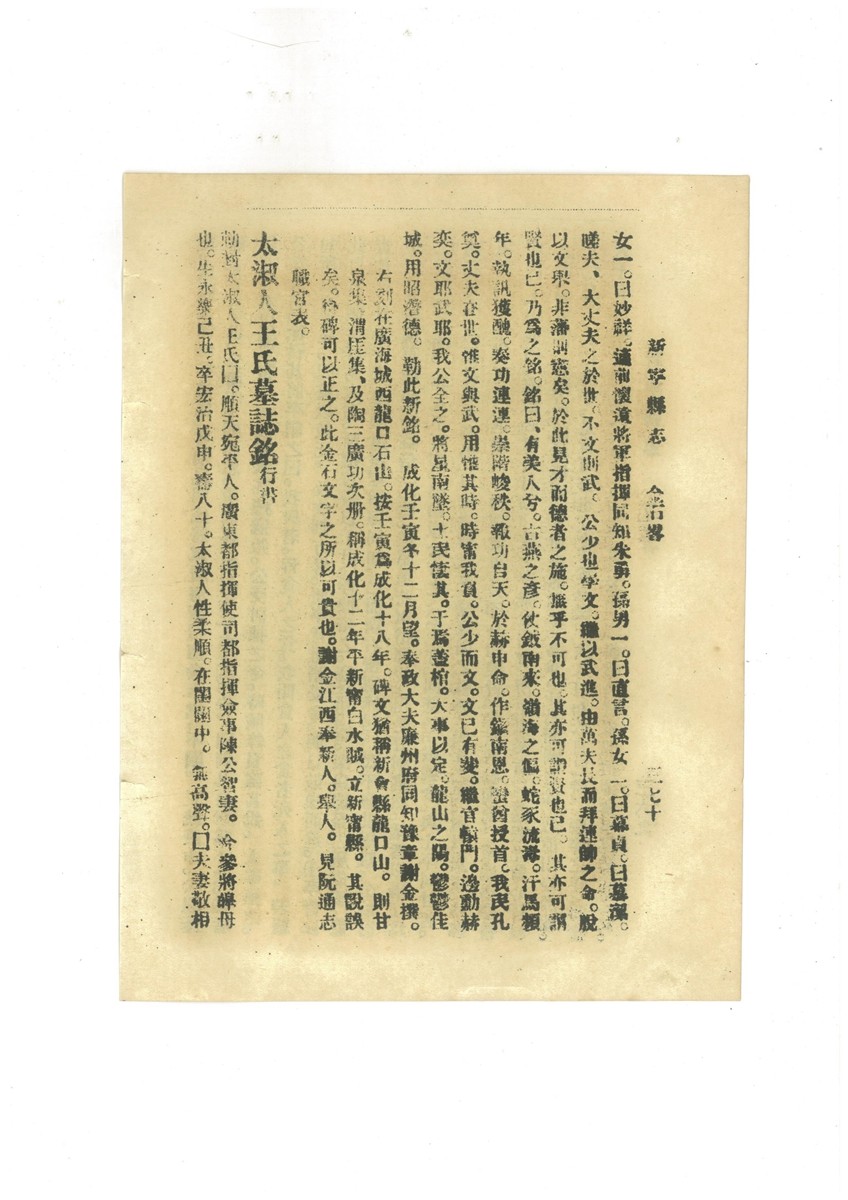 新寧縣志　金石畧　三七十
女一。曰妙祥。適前懷遠將軍指揮同知朱勇。孫男一。曰直言。孫女二。曰慕貞。曰慕潔。
嗟夫、大丈夫之於世。不文則武。公少也學文。繼以武進。由萬夫長而拜連帥之命。脫
以文舉。非藩則憲矣。於此見才而德者之施。無乎不可也。其亦可謂賢也已。其亦可謂
賢也已。乃爲之銘。銘曰、有美人兮。古燕之彥。仗鉞南來。嶺海之偏。蛇豕流毒。汗馬頻
年。執訊獲醜。奏功連連。崇階峻秩。報功自天。於赫申命。作鎮南恩。蠻酋授首。我民孔
奠。丈夫在世。惟文與武。用惟其時。時甯我負。公少而文。文已有斐。繼官轅門。邊勳赫
奕。文耶武耶。我公全之。將星南墜。士民
。于焉蓋棺。大事以定。龍山之陽。鬱鬱佳
城。用昭潛德。勒此新銘。　成化壬寅冬十二月望。奉政大夫廉州府同知豫章謝金撰。
右刻在廣海城西龍口石山。按壬寅爲成化十八年。碑文猶稱新會縣龍口山。則甘
泉集、渭厓集、及陶三廣功次册。稱成化十二年平新甯白水賊。立新甯縣。其說誤
矣。得碑可以正之。此金石文字之所以可貴也。謝金江西奉新人。舉人。見阮通志
職官表。
太淑人王氏墓誌銘行書
勅封太淑人王氏囗。順天宛平人。廣東都指揮使司都指揮僉事陳公智妻。今參將
母
也。生永樂己丑。卒宏治戊申。壽八十。太淑人性柔順。在閨閫中。無高聲。囗夫妻敬相